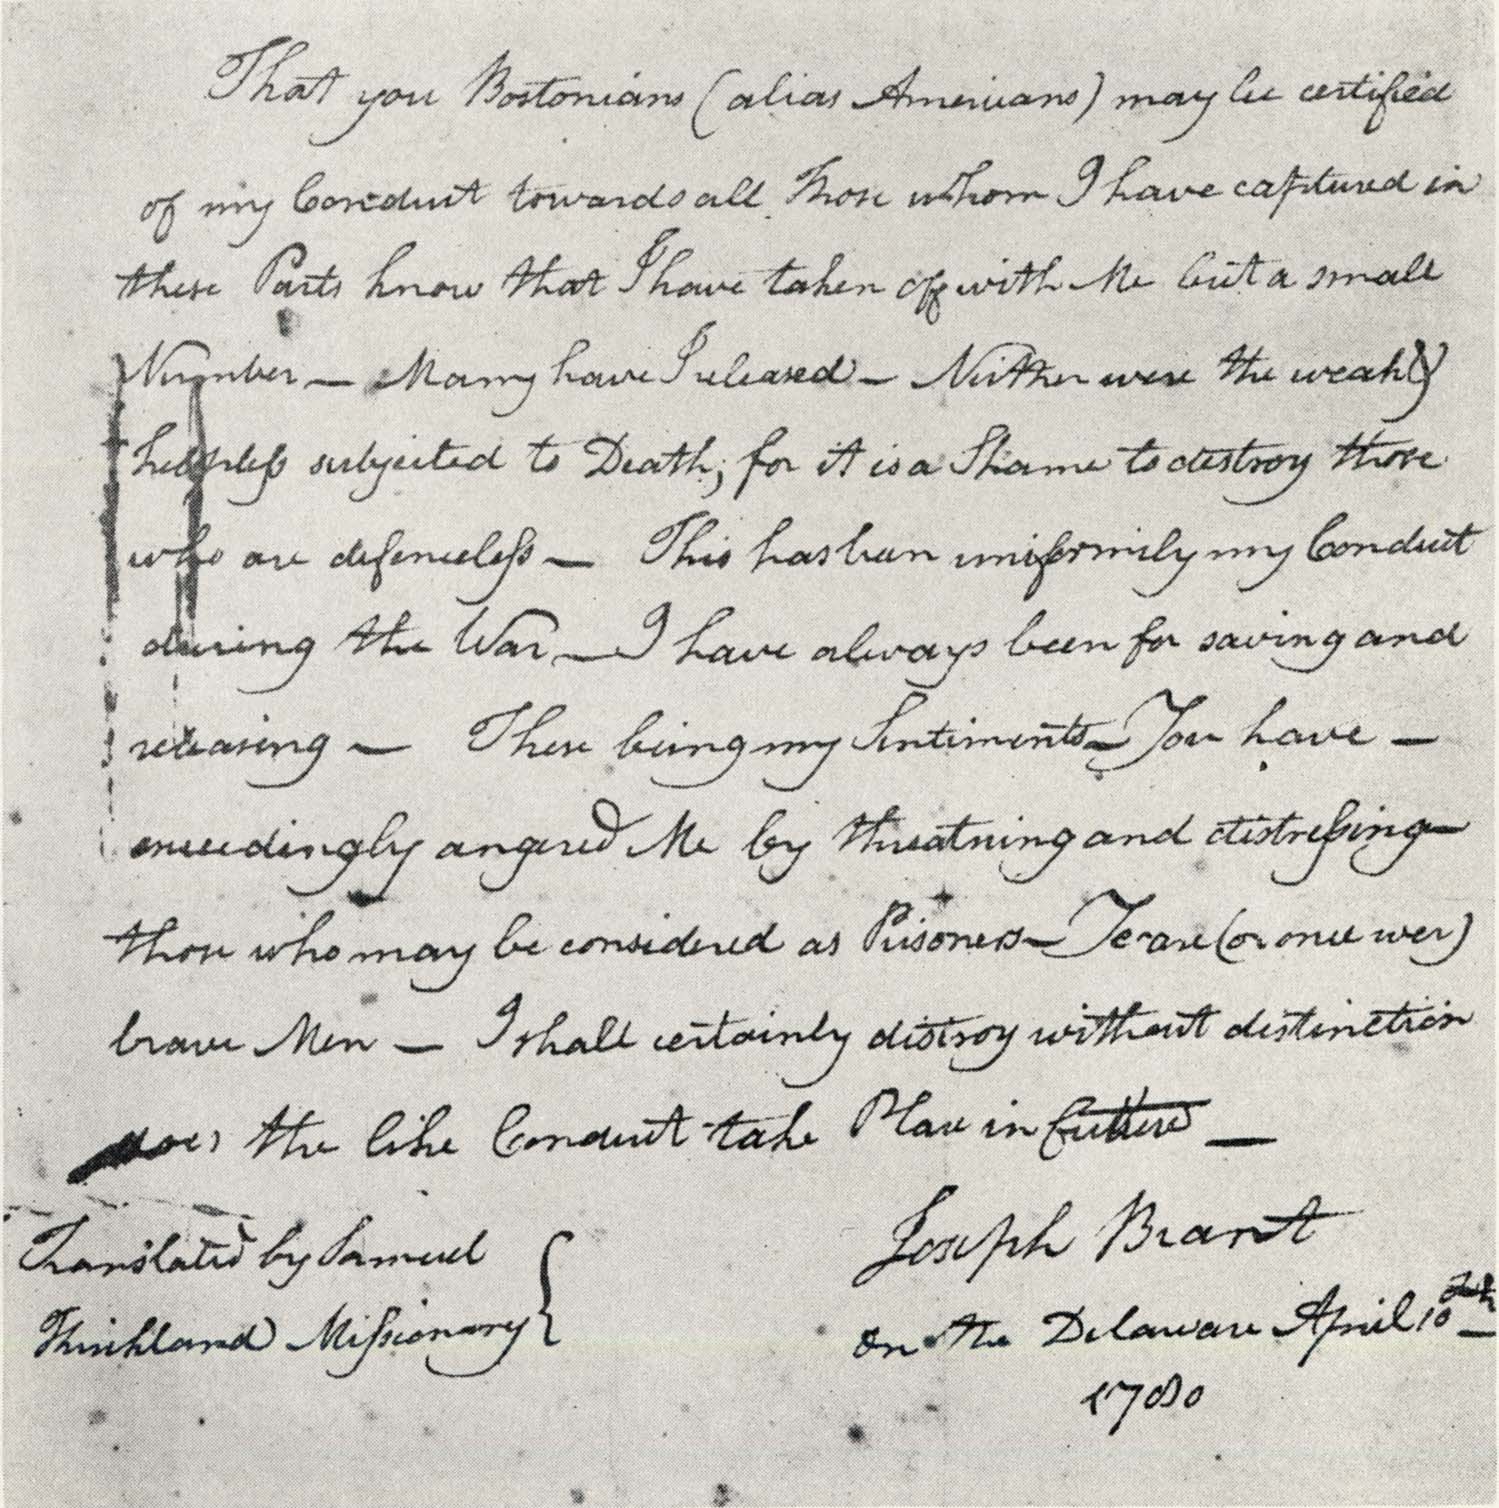 That you Bostonians (alias Americans) may be certified
of my Conduct towards all those whom I have captured in
these Parts know that I have taken off with Me but a small
Number — Many have I released — Neither were the weak &
helpless subjected to Death; for it is a Shame to destroy those
who are defenceless — This has been uniformily my Conduct
during the War — I have always been for saving and
releasing — These being my Sentiments — You have —
exceedingly angered Me by threatning and distressing
those who may be considered as Prisoners — Ye are (or once wer)
brave Men — I shall certainly distroy without distinction
does the like Conduct take Place in future —
Joseph Brant
Translated by Samuel
Missionary
On the Delaware April 10th
1780